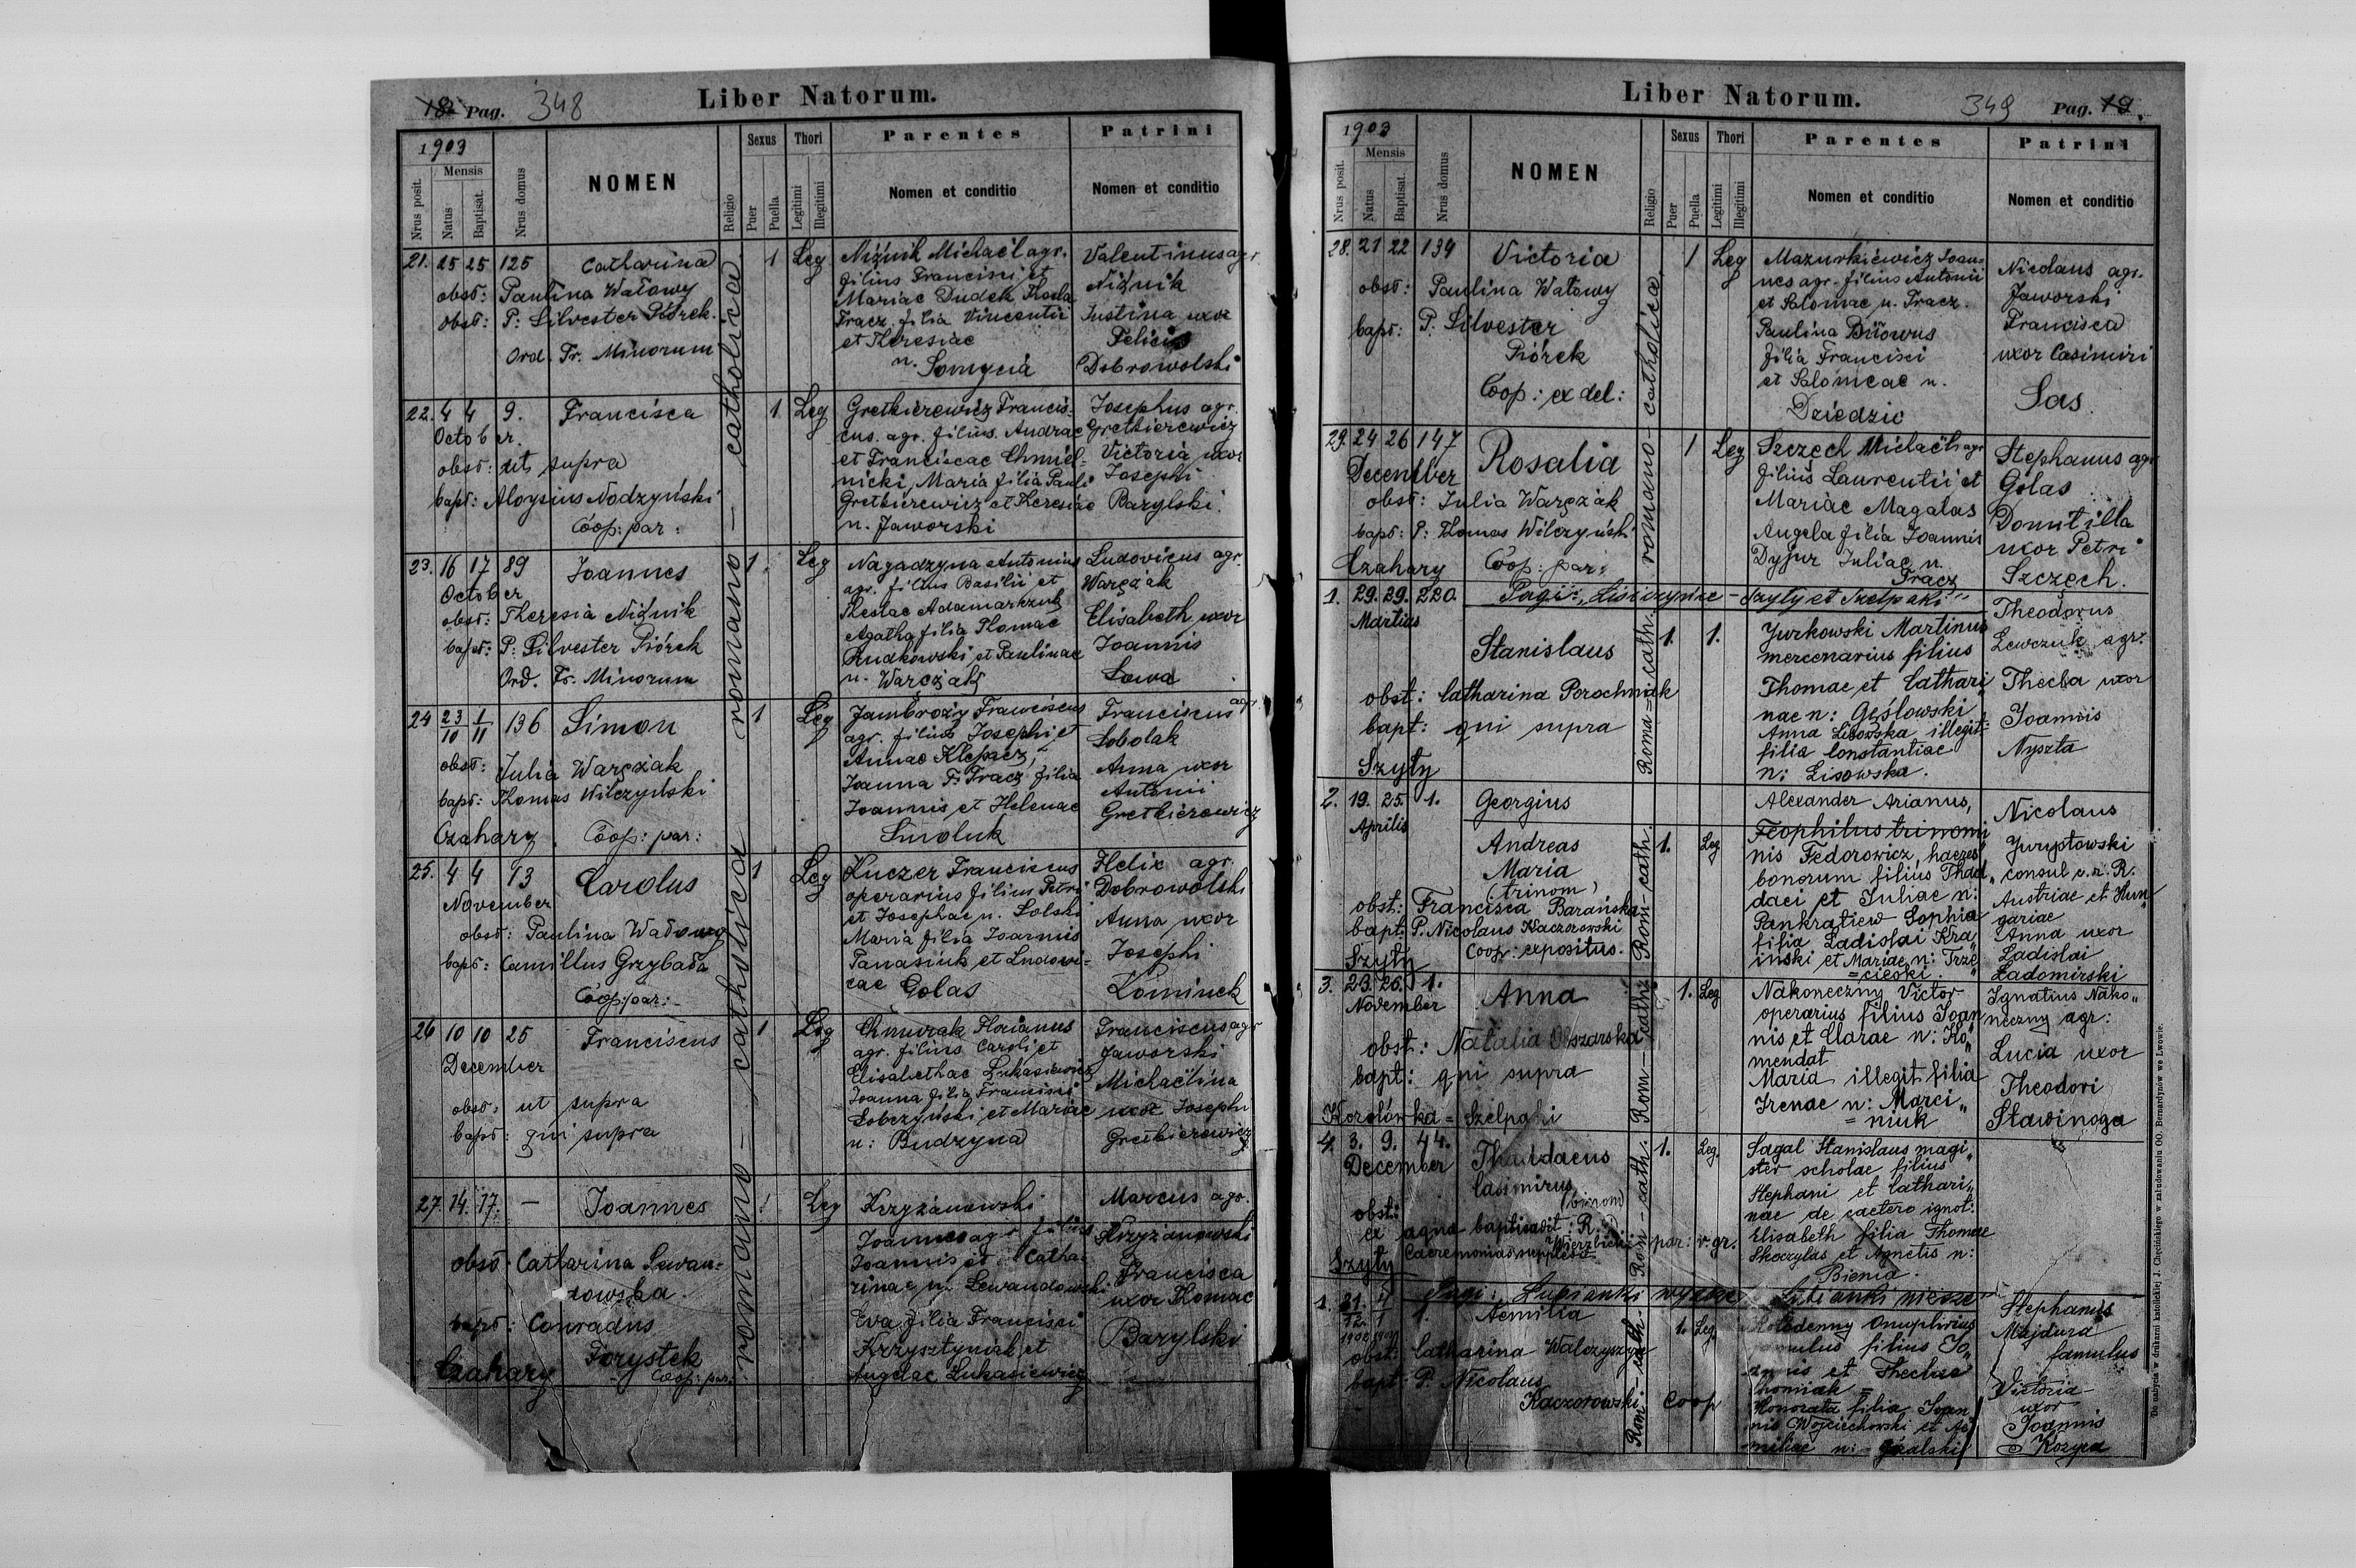 18. Pag. 348
Liber Natorum.
1903
Mensis
Nrus posit.
Natus
Baptisat.
Nrus domus
NOMEN
Religio
Sexus
Puer
Puella
Thori
Legitimi
Illegitimi
Parentes
Nomen et conditio
Patrini
Nomen et conditio
romano - catholica
romano - catholica
21. 25 25 125 Catharina 1 Leg
obst: Paulina Wałowy
obst: P. Silvester Piórek
Ord. Fr. Minorum
Niżnik Michaël agr.
filius Francisci et
Mariae Dudek Thecla
Tracz filia Vincentii
et Theresiae
n.
Valentinus agr.
Niżnik
Iustina uxor
Felicis
Dobrowolski
22. 4 4 9. Francisca 1. Leg
October.
obst: ut supra
bapt: Aloysius Nodzyński
Coop: par:
Gretkierewicz Francis-
cus. agr. filius. Andrae
et Franciscae Chmiel-
nicki, Maria filia Pauli
Gretkierewicz et Theresiae
n. Jaworski
Josephus agr.
Gretkierewicz
Victoria uxor
Josephi
Barylski.
23. 16 17 89 Joannes 1. Leg
October
obst: Theresia Niżnik
bapt: P. Silvester Piórek
Ord. Fr. Minorum
Nagadzyna Antonius
agr. filius Basilii et
Agatha filia Thomae
Rudkowski et Paulinae
n. Warczak
Ludovicus agr.
Warczak
Elisabeth uxor
Joannis
Sawa
24 23/10 1/11 136 Simon 1 Leg
obst: Julia Warczak
bapt: Thomas Wilczyński
Czahary Coop: par:
Jambroży Franciscus
agr. filius Josephi et
Annae Klepacz,
Joanna F. Tracz filia
Joannis et Helenae
Smoluk
Franciscus agr.
Sobolak
Anna uxor
Antonii
Gretkierowicz
25. 4 4 13 Carolus 1 Leg
November
obst: Paulina Wałowy
bapt: Camillus Grzybała
Coop: par:
Kuczer Franciscus
operarius filius Petri
et Josephae n. Solski
Maria filia Joannis
Panasiuk et Ludovi-
cae Golas
Felix agr.
Dobrowolski
Anna uxor
Josephi
Łominek
26 10 10 25 Franciscus 1 Leg
December
obst: ut supra
bapt: qui supra
Chmurak Florianus
agr. filius Caroli et
Elisabethae Łukasiewicz
Joanna filia Francisci
Sobczyński et Mariae
n: Budzyna
Franciscus agr
Jaworski
Michaëlina
uxor Josephi
Gretkierewicz
27. 14. 17. - Joannes 1 Leg
obst: Catharina Lewan-
dowska.
bapt: Conradus
Forystek
Czahary Coop: par:
Krzyżanowski
Joannes agr filius
Joannis et Catha-
rinae n. Lewandowski
Eva filia Francisci
Krzysztyniak et
Angelae Łukasiewicz
Marcus agr.
Krzyżanowski
Francisca
uxor Thomae
Barylski
Liber Natorum.
349 Pag. 19.
1903
Mensis
Nrus posit.
Natus
Baptisat.
Nrus domus
NOMEN
Religio
Sexus
Puer
Puella
Thori
Legitimi
Illegitimi
Parentes
Nomen et conditio
Patrini
Nomen et conditio
romano - catholica
28. 21 22 134 Victoria 1 Leg
obst: Paulina Wałowy
bapt: P. Silvester
Piórek
Coop: ex del:
Mazurkiewicz Joan-
nes agr. filius Antonii
et Salomae n. Tracz.
Paulina
filia Francisci
et Salomeae n.
Dziedzic
Nicolaus agr.
Jaworski
Francisca
uxor Casimiri
Sas
29. 24 26 147 Rosalia 1 Leg
December
obst: Julia Warczak
bapt: P. Thomas Wilczyński
Czahary Coop: par:
Szczęch Michaël agr
filius Laurentii et
Mariae Magalas
Angela filia Joannis
Dyjur Juliae n.
Tracz
Stephanus agr
Golas
Domitilla
uxor Petri
Szczęch.
Pagi: - Szyły et Szelpaki
1. 29. 29. 220. Stanislaus Roma=cath. 1. 1.
Martius
obst: Catharina Porochniak
bapt: qui supra
Szyły
Jurkowski Martinus
mercenarius filius
Thomae et Cathari
nae n: Gęślowski
Anna Lisowska illegit:
filia Constantiae
n: Lisowska.
Theodorus
Lewczuk agr.
Thecla uxor
Joannis
Nyszta
2. 19. 25. 1. Georgius Rom=cath. 1. Leg
Aprilis
Andreas
Maria
(trinom)
obst: Francisca Barańska
bapt: P. Nicolaus Kaczorowski
Szyły Coop: expositus.
Alexander Arianus,
Teophilus trinomi
nis Fedorowicz, haeres
bonorum filius Thad
daei et Juliae n:
Pankratiew Sophia
filia Ladislai Kra
iński et Mariae n: Trze
=cieski.
Nicolaus
Jurystowski
consul c. r. R.
Austriae et Hun
gariae
Anna uxor
Ladislai
Ładomirski
3. 23. 26. 1. Anna Rom=cath. 1. Leg
November
obst: Natalia Olszarska
bapt: qui supra
Korolówka = Szelpaki
Nakoneczny Victor
operarius filius Joan
nis et Clarae n: Ko
mendat
Maria illegit filia
Irenae n: Marci
=niuk
Ignatius Nako
neczny agr:
Lucia uxor
Theodori
Stawinoga
4. 3. 9. 44. Thaddaeus Rom-cath. 1. Leg.
December
Casimirus
(binom)
obst:
ex aqua baptisavit: R.
Wierzbicki par: r. gr.
Caeremonias supplevit
Szyły
Sagal Stanislaus magi
ster scholae filius
Stephani et Cathari
nae de caetero ignot:
Elisabeth filia Thomae
Skoczylas et Agnetis n:
Bienia.
Pagi: Łubianki wyższe Łubianki niższe
1. 31/12 1902 1. Aemilia Rom-cath. 1. Leg.
obst: Catharina Walczyszyn
bapt: P. Nicolaus
Kaczorowski Coop
Onuphrius
famulus filius Jo
annis et Theclae
Honorata filia Joan
nis Wojciechowski et Ae
miliae n:
Stephanus
Majdura
famulus
Victoria
uxor
Joannis
Kozyra
Do nabycia w drukarni katolickiej J. Chęcińskiego w zabudowaniu OO. Bernardynów we Lwowie.